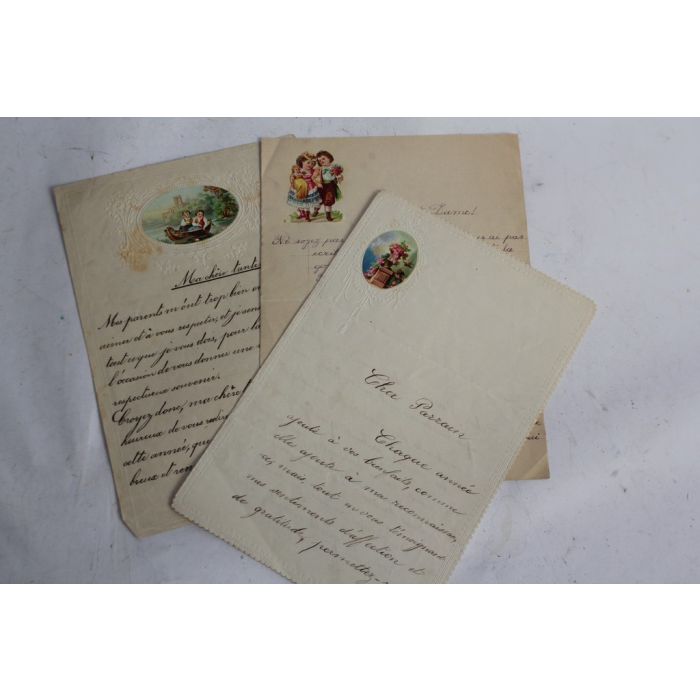 Ma chère tante
Mes parents m'ont trop bien
aimer et à vous respecter, et je sens
tout ce que je vous dois, pour
l'occasion de vous donner une
respectueux souvenir.
Croyez donc, ma chère
heureux de vous
cette année, que
breux et
Ne soyez pas
ai pas
la
Cher Parrain
Chaque année
ajoute à vos bienfaits, comme
elle ajoute à ma reconnaissan
ce, mais, tout en vous témoignant
mes sentiments d'affection et
de gratitude, permettez-